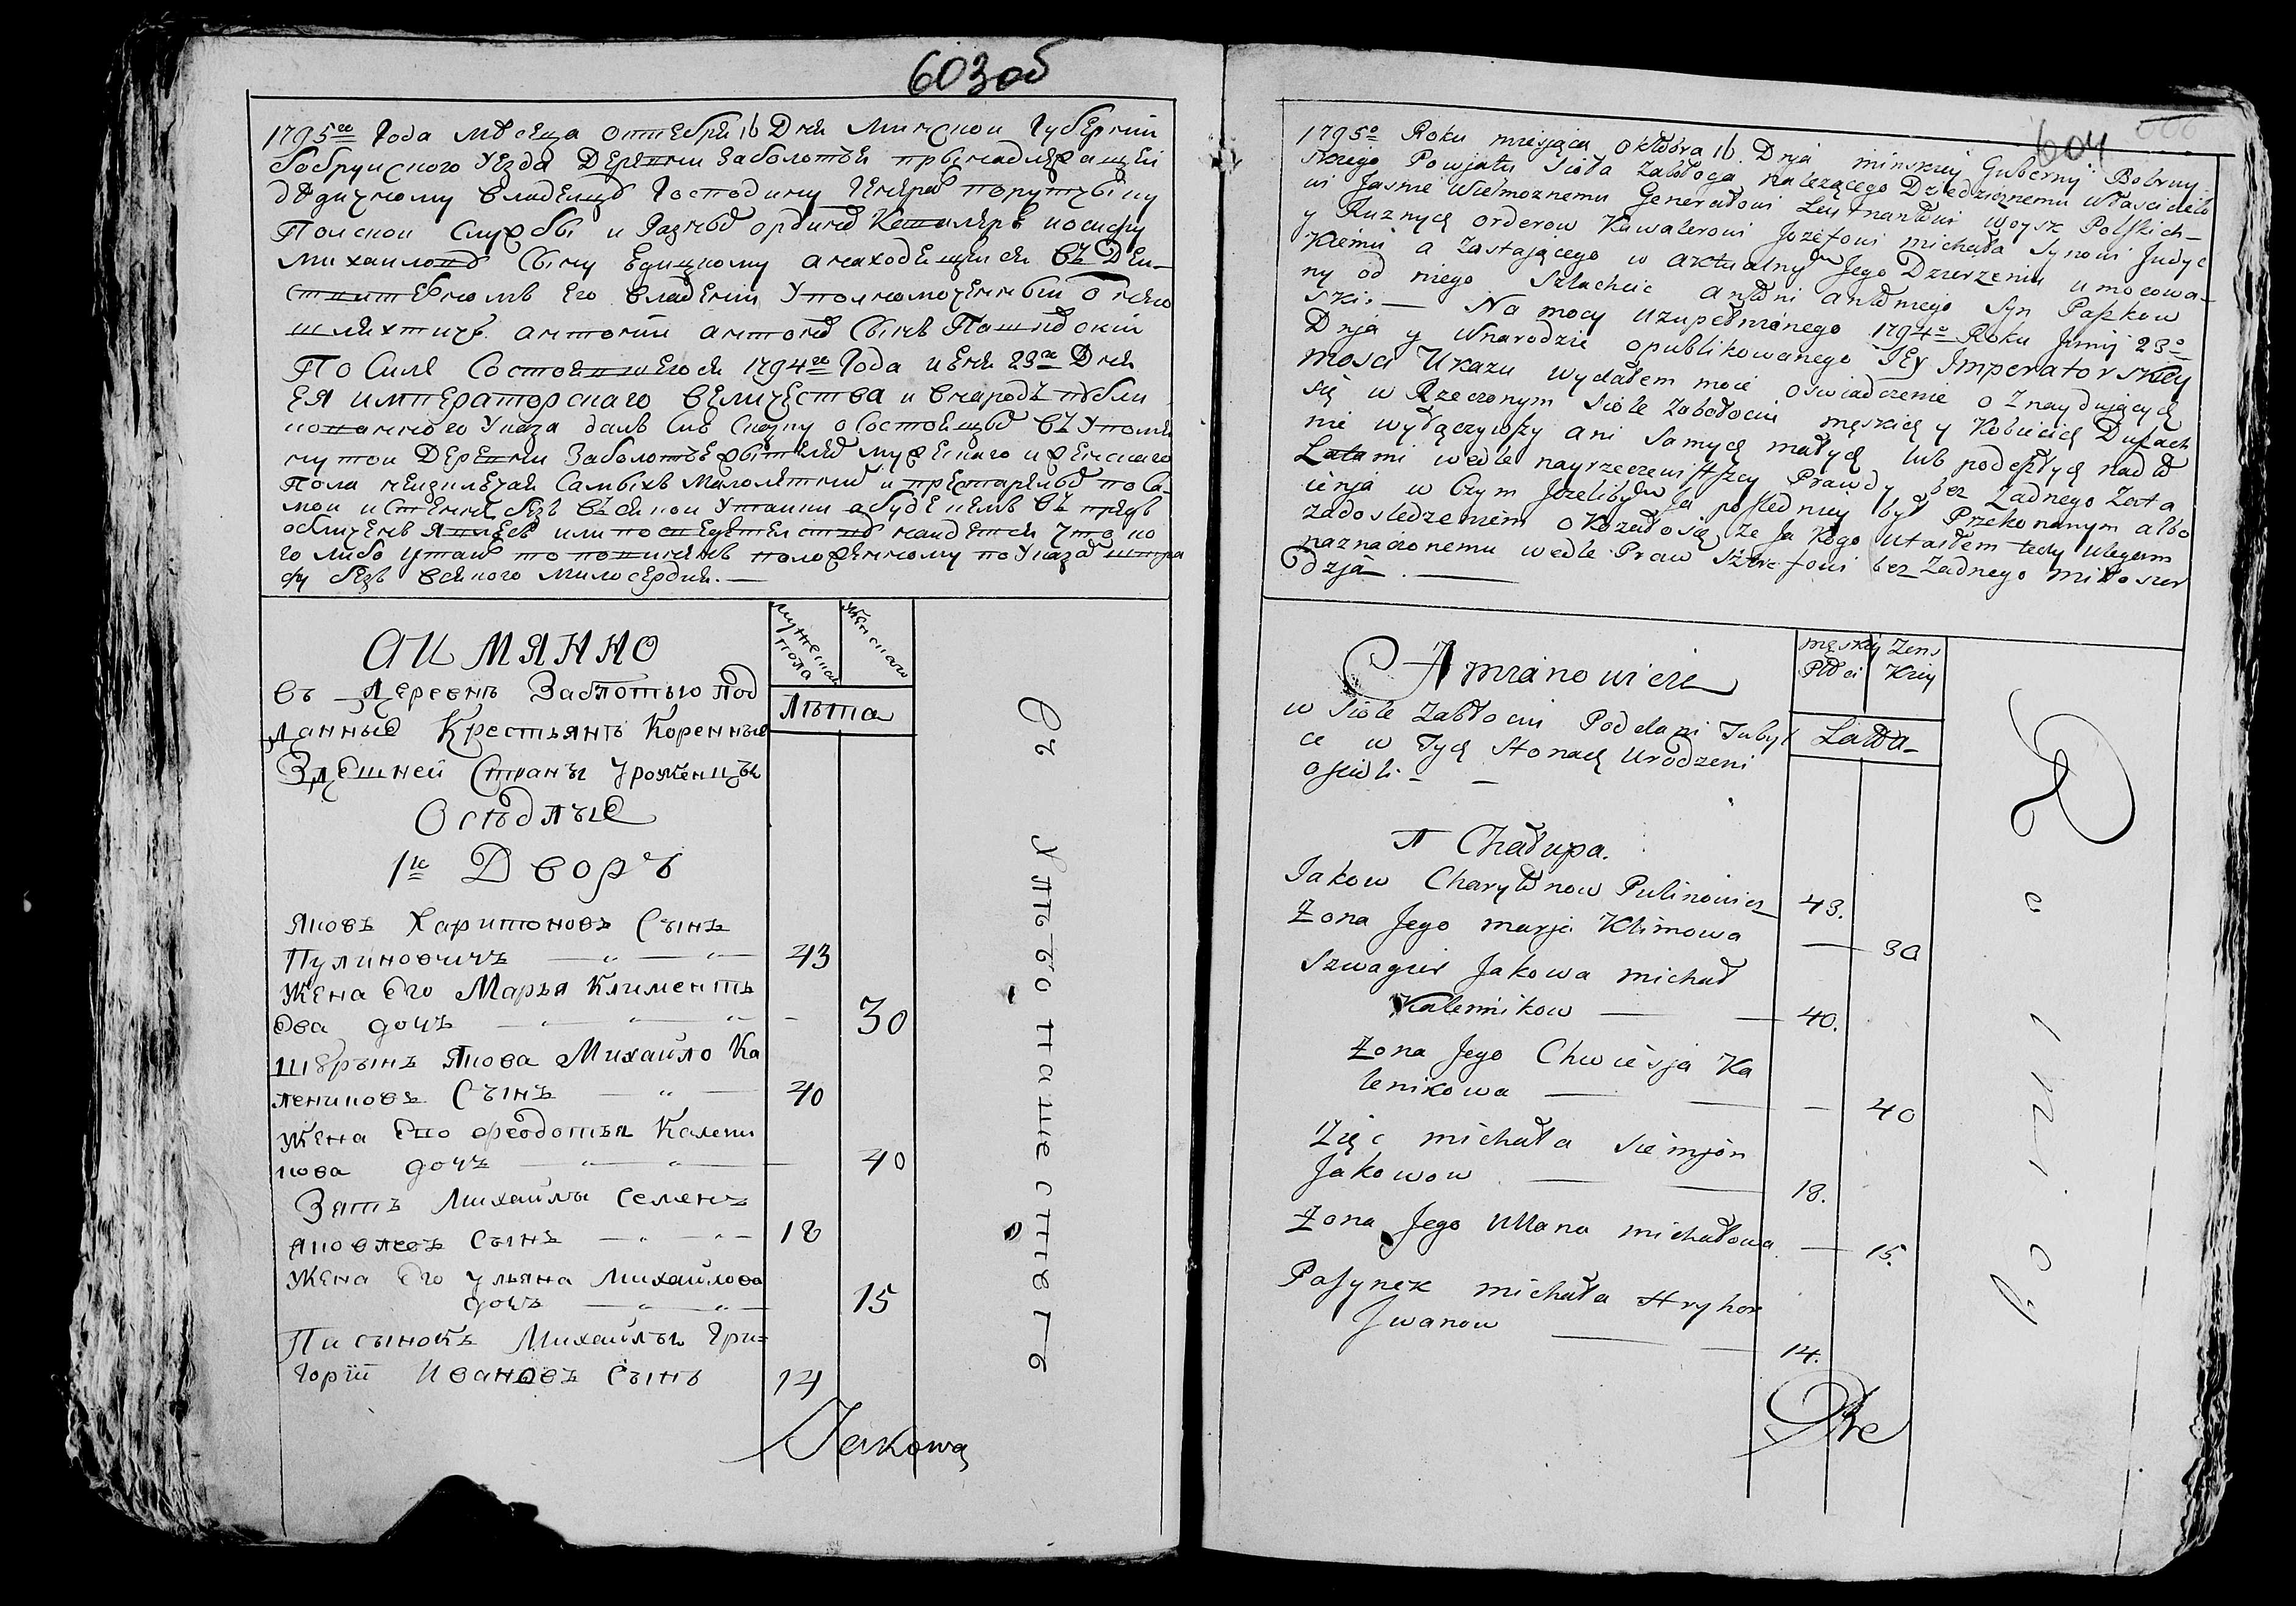 603 об
1795го Года мѣсеца октебря 16 Дня Минской Губерний
бобруйского Уезда Деревни Заболотья принадлежащей
дѣдичному владельцѣ Господину Генерал порутчику
Полской Службы и Разныѣ ординѣ Кавалерѣ иосифу
Михаиловѣ Сыну Едицкому анаходещейся въ Деи-
ствителномъ Его владении Уполномоченный от него
шляхтичъ антоний антонѣ Сынъ Пашкѣвский
По Силе Состоявшегося 1794го Года июня 23го Дня
ЕЯ императорскаго величества и внародъ публи
кованного Указа далъ Сию Сказку о состоящѣ въ Упомя
нутой Деревни Заболотье мужескаго и женскаго
Пола неизключая Самыхъ Малолетних и престарелыѣ по Са-
мой истенне безъ въсякой Утайки а буде немъ въ предь
обличенъ явлюсь или по следствию найдется что ко
го либо Утаилъ то повиненъ положенному по Указѣ штра
фу безъ всякого милосердия. —
АИМЯННО
мужеска пола
женскаго
въ Деревнѣ Заблотью Под
данные Крестьянѣ Коренные
Здешней Страны Уроженцы
Осѣдлые
Лѣта
1й Дворъ
Яковъ Харитоновъ Сынъ
Пулиновичъ — 43
Жена Его Марья Клименть
ева дочъ — 30
Шурынъ Якова Михайло Ка
лениковъ Сынъ — 40
Жена Его Феодотья Калени
кова дочъ — 40
Зять Михайлы Семенъ
Яковлевъ Сынъ — 18
Жена Его Ульяна Михайлова
дочъ — 15
Пасынокъ Михайлы Гри=
горiй Ивановъ Сынъ 14
Jakowa
604
1795o Roku miesjąca Oktobra 16. Dnja minskiey Gubernij Bobruy-
skiego Powjatu Sioła Zabłoga należącego Dziedzicznemu właścicielo
wi Jasnie Wielmoznemu Generałowi Leutnantowi woysk Polskich
y Ruznych orderow Kawalerowi Jozefowi michała Synowi Judyc
kiemu a Zastającego w aktualnym Jego Dzierzeniu umocowa-
ny od niego Szlachcic antoni antoniego Syn Paszkow
ski. — Na mocy uzupełnionego 1794o Roku Junij 23o
Dnja y wnarodzie opublikowanego JEy Imperatorskiey
mosci Ukazu wydałem moie oswiadczenie o Znaydujących
się w Rzeczonym siole Zabołociu męskich y Kobiecich Duszach
nie wyłączywszy ani Samych małych lub podeszłych nad to
Latami wedle nayrzeczewistszey Prawdy bez Zadnego Zata
ienja w Czym Jezelibym Ja posledniey był Przekonanym albo
Zadosledzeniem okozałosię ze Ja Kogo Utaiłem tedy ulegam
naznaczonemu wedle Praw Sztrafowi bez Zadnego miłosier
dzja — . —
A Imianowicie
męskiey Płci
Zens Kiey
w siole Zabłociu Poddani Tubyl
ce w Tych Stonach Urodzeni
osiedli. - -
Latta
1 Chałupa.
Jakow Charytonow Pulinowicz 43.
Żona Jego marja Klimowa — 30
Szwagier Jakowa michał
Kalennikow — 40.
Żona Jego Chwiesja Ka
lenikowa — 40
Zięc michała Siemjon
Jakowow — 18.
Żona Jego Ullana michałowa — 15.
Pasynek michała Hryhor
Jwanow — 14.